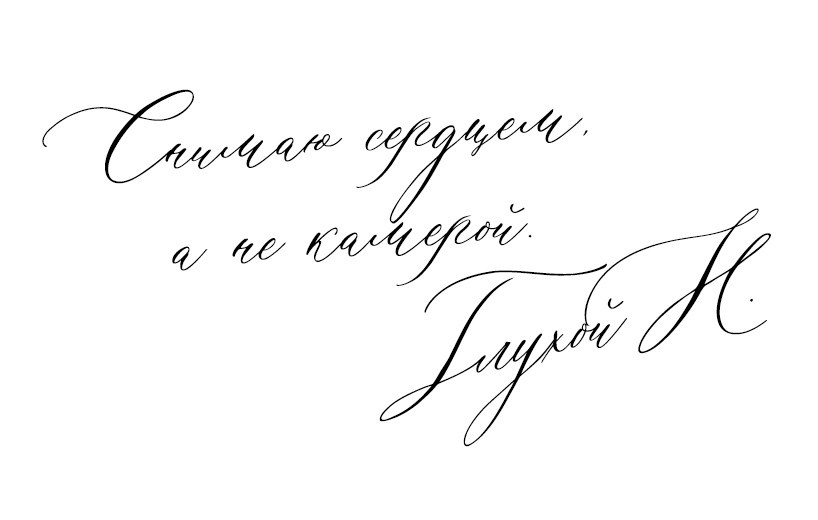 Снимаю сердцем,
а не камерой.
Глухой Н.